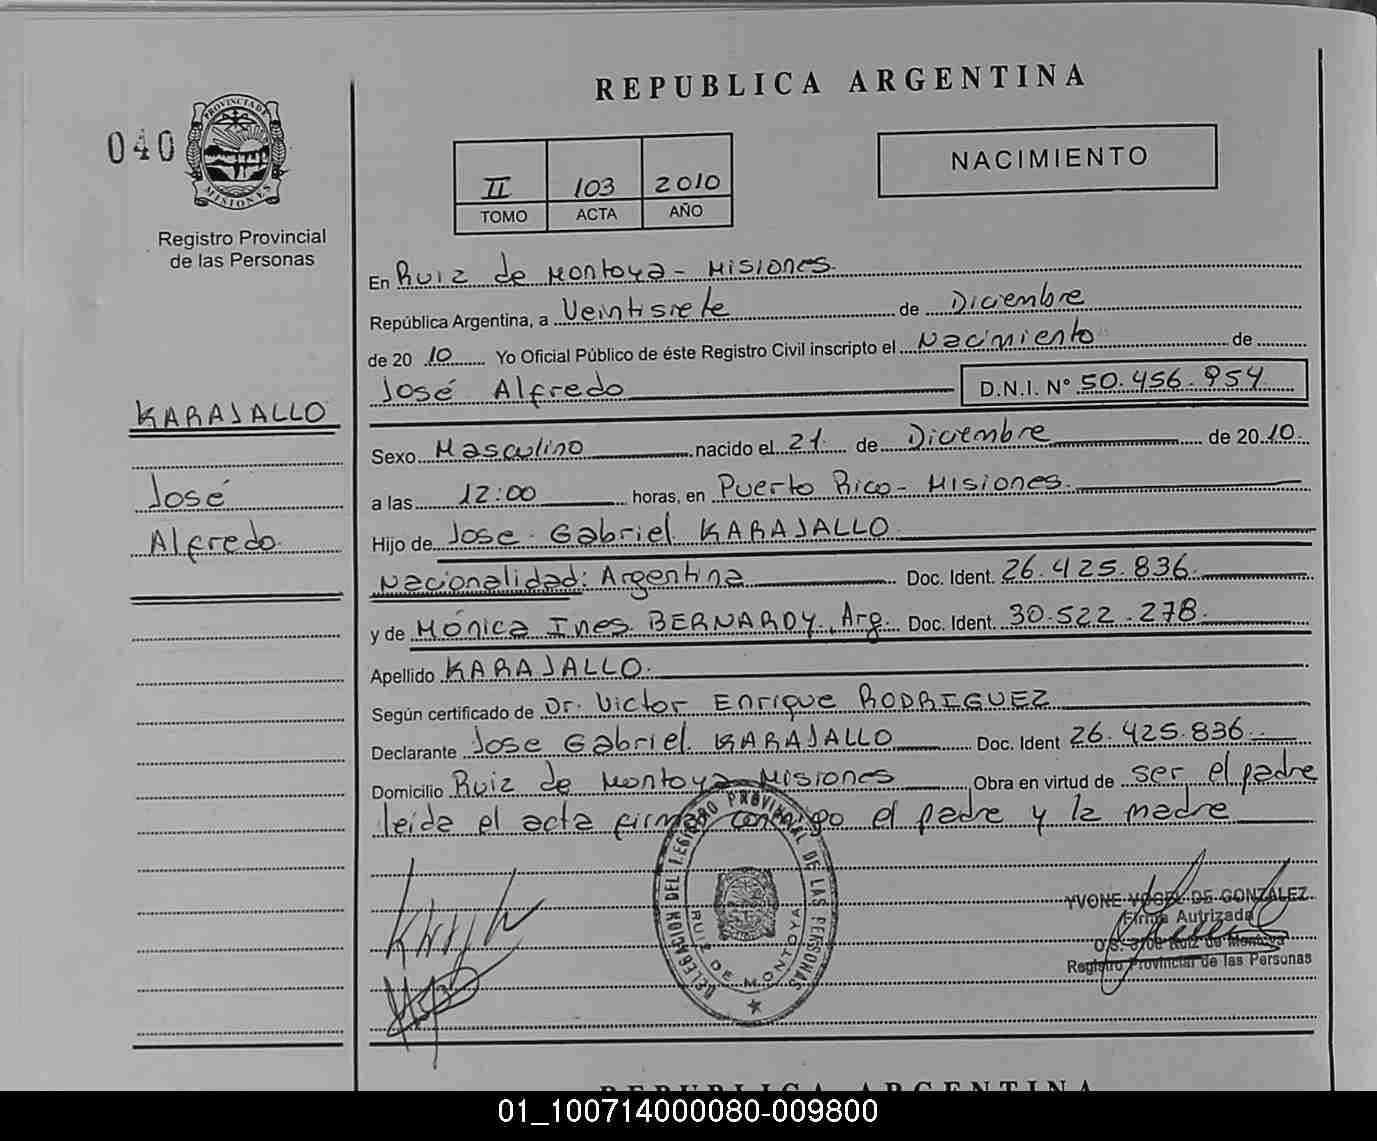 REPUBLICA ARGENTINA
040
PROVINCIA DE
MISIONES
Registro Provincial
de las Personas
II 103 2010
TOMO ACTA AÑO
NACIMIENTO
En Ruiz de Montoya - Misiones
República Argentina, a Veintisiete de Diciembre
de 20 10 Yo Oficial Público de éste Registro Civil inscripto el Nacimiento de
José Alfredo D.N.I. N° 50.456.954
KARAJALLO
José
Alfredo
Sexo Masculino nacido el 21 de Diciembre de 20 10
a las 12:00 horas, en Puerto Rico - Misiones
Hijo de Jose Gabriel KARAJALLO
Nacionalidad: Argentina Doc. Ident. 26.425.836
y de Mónica Ines BERNARDY, Arg. Doc. Ident. 30.522.278
Apellido KARAJALLO
Según certificado de Dr. Victor Enrique RODRIGUEZ
Declarante Jose Gabriel KARAJALLO Doc. Ident 26.425.836
Domicilio Ruiz de Montoya Misiones Obra en virtud de ser el padre
leida el acta firma conmigo el padre y la madre
DELEGACION DEL REGISTRO PROVINCIAL DE LAS PERSONAS
RUIZ DE MONTOYA
YVONE VOGEL DE GONZALEZ
Firma Autrizada
Ruiz de Montoya
Registro Provincial de las Personas
REPUBLICA ARGENTINA
01_100714000080-009800